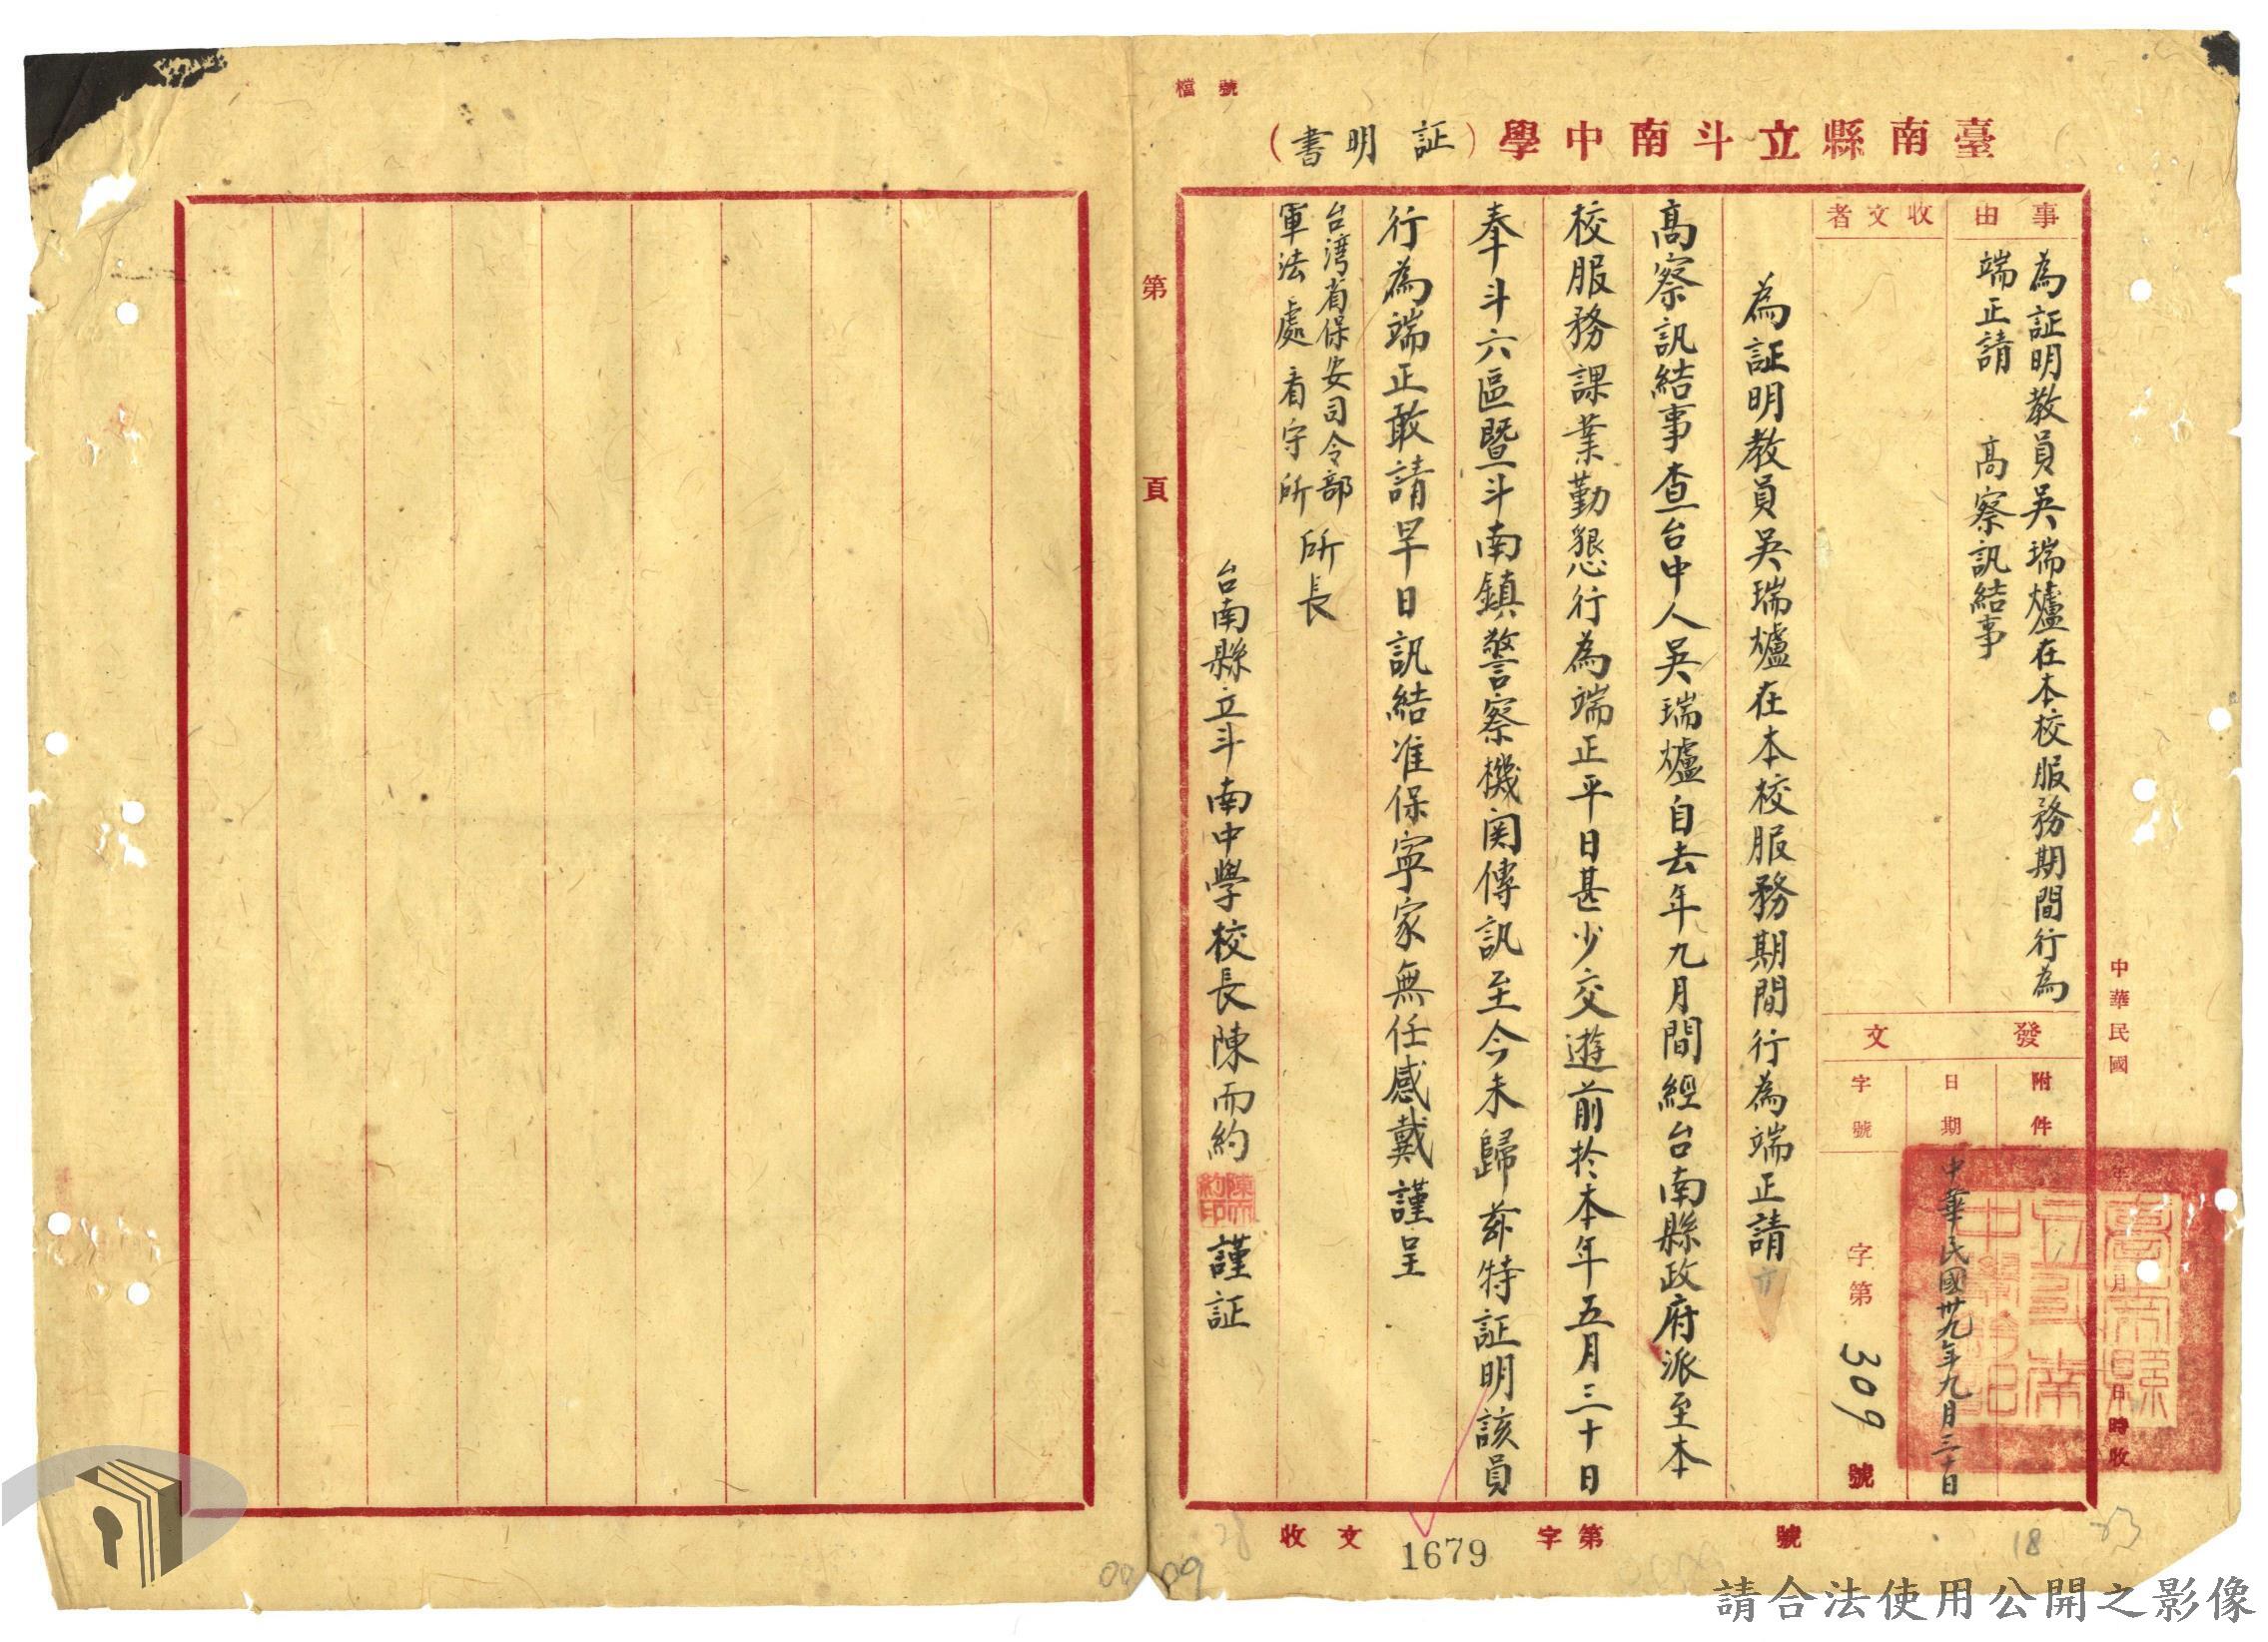 檔號
臺南縣立斗南中學（証明書）
事由
為証明教員吳瑞爐在本校服務期間行為
端正請　高察訊結事
收文者
發文
附件
日期
中華民國卅九年九月三十日
字號
字第309號
中華民國　年　月　日　時收
為証明教員吳瑞爐在本校服務期間行為端正請
高察訊結事查台中人吳瑞爐自去年九月間經台南縣政府派至本
校服務課業勤懇行為端正平日甚少交遊前於本年五月三十日
奉斗六區暨斗南鎮警察機関傳訊至今未歸茲特証明該員
行為端正敢請早日訊結准保寧家無任感戴謹呈
台湾省保安司令部
軍法處看守所
所長
台南縣立斗南中學校長陳而約
謹証
第　頁
收文　字第　號
1679
18
請合法使用公開之影像